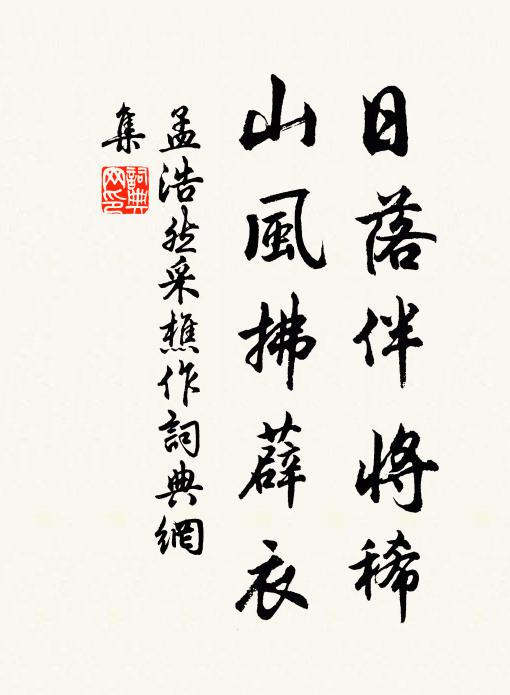 日落伴將稀
山風拂薜衣
孟浩然采樵作詞典網
集
詞典
网印